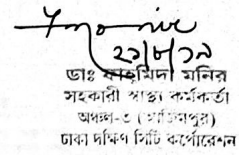 ২৯/৮/১৯
ডাঃ ফাহমিদা মনির
সহকারী স্বাস্থ্য কর্মকর্তা
অঞ্চল-৩ (আজিমপুর)
ঢাকা দক্ষিণ সিটি কর্পোরেশন